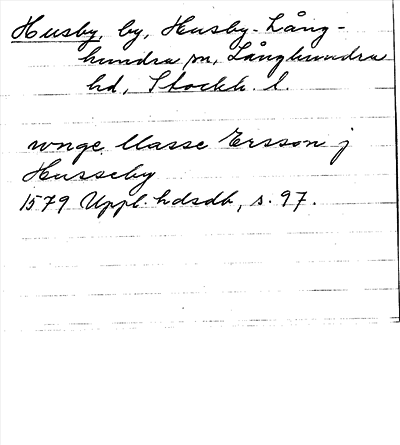 Husby, by, Husby-Lång-
hundra sn, Långhundra
hd, Stockh. l.
wnge Classe Ersson j
Husseby
1579 Uppl. hdsdb, s. 97.